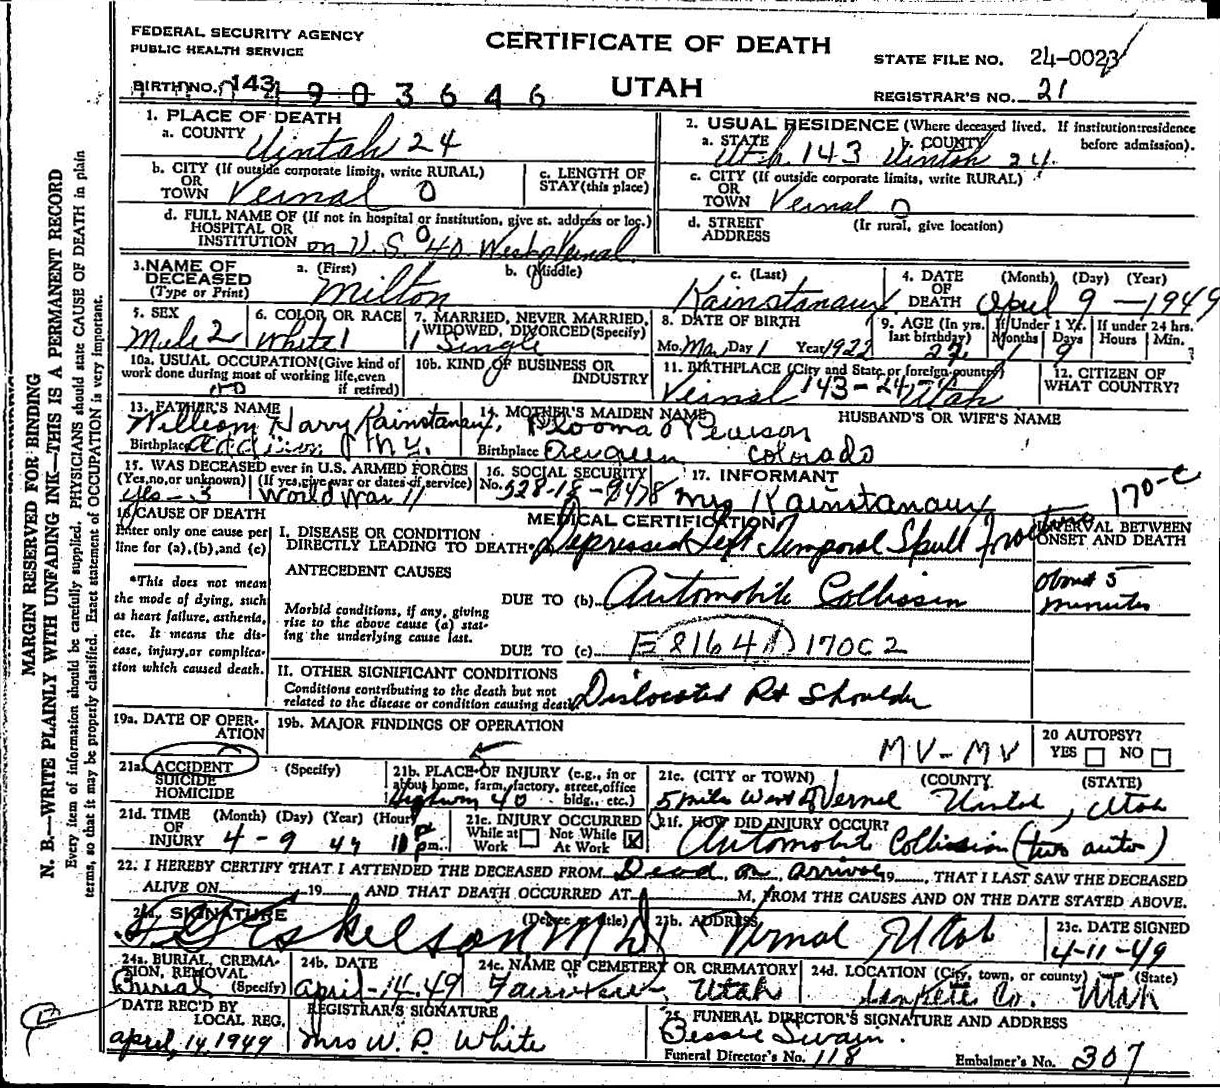 FEDERAL SECURITY AGENCY
PUBLIC HEALTH SERVICE
CERTIFICATE OF DEATH
UTAH
STATE FILE NO. 24-0023
BIRTH NO. 143 903646
REGISTRAR'S NO. 21
MARGIN RESERVED FOR BINDING
N. B.—WRITE PLAINLY WITH UNFADING INK—THIS IS A PERMANENT RECORD
Every item of information should be carefully supplied. PHYSICIANS should state CAUSE OF DEATH in plain
terms, so that it may be properly classified. Exact statement of OCCUPATION is very important.
1. PLACE OF DEATH
a. COUNTY Uintah 24
b. CITY (If outside corporate limits, write RURAL)
OR
TOWN Vernal 0
c. LENGTH OF
STAY (this place)
d. FULL NAME OF (If not in hospital or institution, give st. address or loc.)
HOSPITAL OR
INSTITUTION on U.S. 40 West of Vernal
2. USUAL RESIDENCE (Where deceased lived. If institution:residence
before admission).
a. STATE Utah 143 b. COUNTY Uintah 24
c. CITY (If outside corporate limits, write RURAL)
OR
TOWN Vernal 0
d. STREET (If rural, give location)
ADDRESS
3. NAME OF
DECEASED
(Type or Print)
a. (First) Milton
b. (Middle)
c. (Last)
4. DATE
OF
DEATH (Month) (Day) (Year)
April 9 — 1949
5. SEX
Male 2
6. COLOR OR RACE
White 1
7. MARRIED, NEVER MARRIED,
WIDOWED, DIVORCED (Specify)
1 Single
8. DATE OF BIRTH
Mo. Mar Day 1 Year 1922
9. AGE (In yrs.
last birthday)
If Under 1 Yr.
Months Days
9
If under 24 hrs.
Hours Min.
10a. USUAL OCCUPATION (Give kind of
work done during most of working life, even
if retired)
10b. KIND OF BUSINESS OR
INDUSTRY
11. BIRTHPLACE (City and State or foreign country)
Vernal 143-24 Utah
12. CITIZEN OF
WHAT COUNTRY?
13. FATHER'S NAME
William Harry
Birthplace Addison N.Y.
14. MOTHER'S MAIDEN NAME
Pearson
Birthplace Evergreen Colorado
HUSBAND'S OR WIFE'S NAME
15. WAS DECEASED ever in U.S. ARMED FORCES
(Yes, no, or unknown) (If yes, give war or dates of service)
Yes - 3 World War II
16. SOCIAL SECURITY
No. 528-18-9478
17. INFORMANT
Mrs
170-c
18. CAUSE OF DEATH
Enter only one cause per
line for (a), (b), and (c)
*This does not mean
the mode of dying, such
as heart failure, asthenia,
etc. It means the dis-
ease, injury, or complica-
tion which caused death.
MEDICAL CERTIFICATION
INTERVAL BETWEEN
ONSET AND DEATH
I. DISEASE OR CONDITION
DIRECTLY LEADING TO DEATH* Depressed Left Temporal Skull Fracture
ANTECEDENT CAUSES
Morbid conditions, if any, giving
rise to the above cause (a) stat-
ing the underlying cause last.
DUE TO (b) Automobile Collission
about 5
minutes
DUE TO (c) E 8164 170C2
II. OTHER SIGNIFICANT CONDITIONS
Conditions contributing to the death but not
related to the disease or condition causing death
Dislocated Rt Shoulder
19a. DATE OF OPER-
ATION
19b. MAJOR FINDINGS OF OPERATION
MV-MV
20 AUTOPSY?
YES NO
21a. ACCIDENT (Specify)
SUICIDE
HOMICIDE
21b. PLACE OF INJURY (e.g., in or
about home, farm, factory, street, office
bldg., etc.)
Highway 40
21c. (CITY or TOWN) (COUNTY) (STATE)
5 miles West of Vernal Uintah, Utah
21d. TIME (Month) (Day) (Year) (Hour)
OF
INJURY 4-9 49 pm.
21e. INJURY OCCURRED
While at Work
Not While At Work X
21f. HOW DID INJURY OCCUR?
Automobile Collission (two auto)
22. I HEREBY CERTIFY THAT I ATTENDED THE DECEASED FROM Dead on arrival 19, THAT I LAST SAW THE DECEASED
ALIVE ON 19 AND THAT DEATH OCCURRED AT M, FROM THE CAUSES AND ON THE DATE STATED ABOVE.
23a. SIGNATURE (Degree or title)
Eskelson MD
23b. ADDRESS
Vernal Utah
23c. DATE SIGNED
4-11-49
24a. BURIAL, CREMA-
TION, REMOVAL
(Specify)
Burial
24b. DATE
April-14-49
24c. NAME OF CEMETERY OR CREMATORY
Fairview, Utah
24d. LOCATION (City, town, or county) (State)
Sanpete Co. Utah
DATE REC'D BY
LOCAL REG.
April, 14, 1949
REGISTRAR'S SIGNATURE
Mrs W. P. White
25. FUNERAL DIRECTOR'S SIGNATURE AND ADDRESS
Bessie Swain.
Funeral Director's No. 118
Embalmer's No. 307